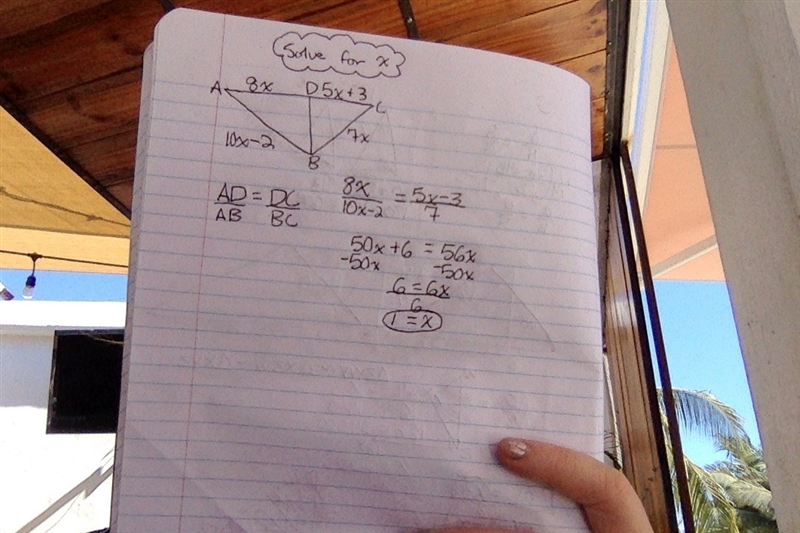 Solve for x
A 8x D 5x+3 C
10x-2 7x
B
AD/AB = DC/BC 8x/10x-2 = 5x-3/7
50x+6 = 56x
-50x -50x
6 = 6x
6
1 = x